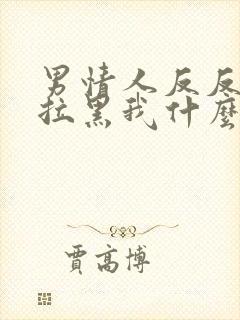 男情人反反
拉黑我什麼
賈高博